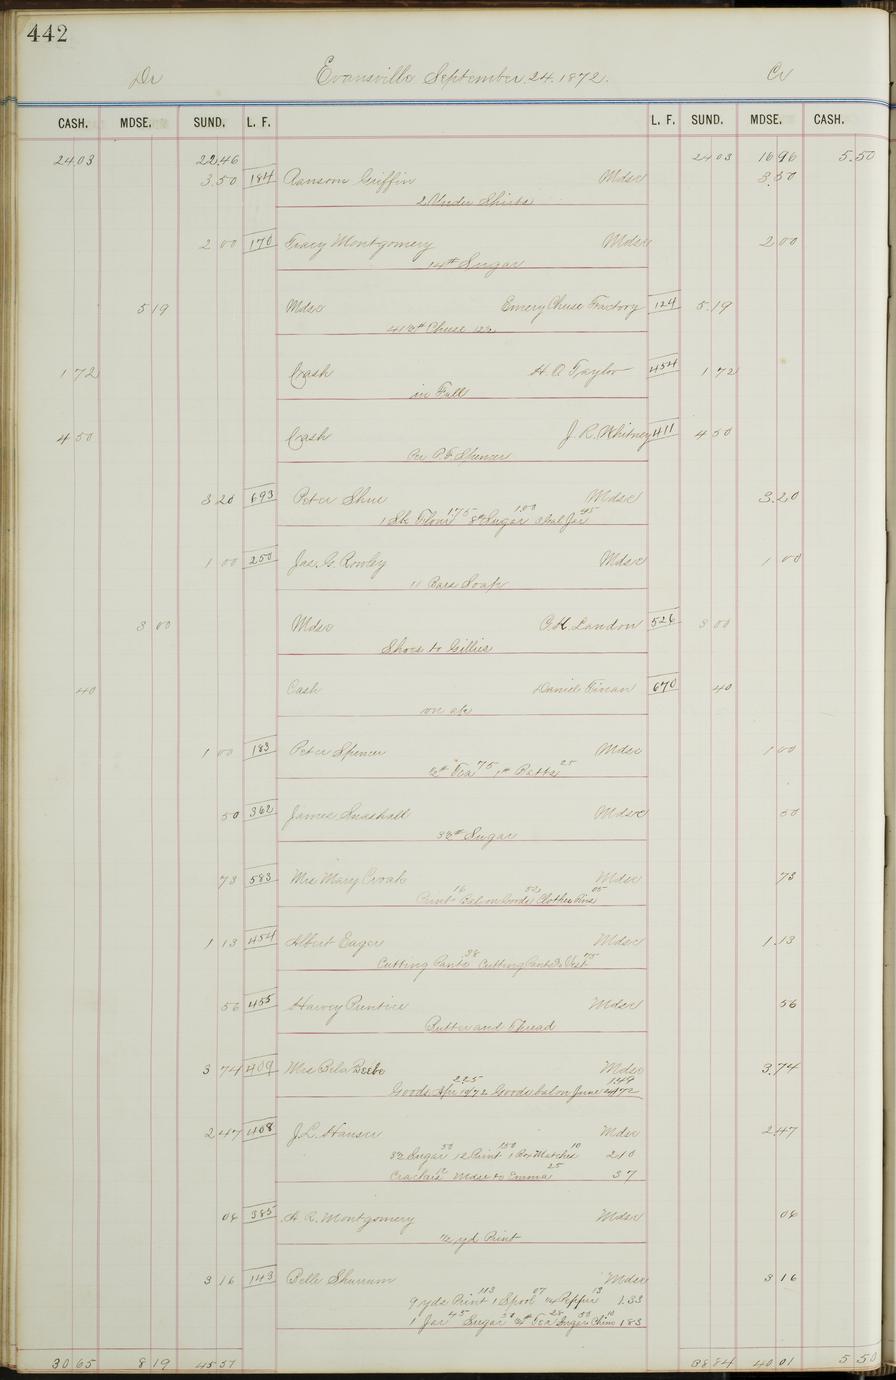 442
Dr Evansville September 24. 1872. Cr
CASH. MDSE. SUND. L. F. L. F. SUND. MDSE. CASH.
24.03 22.46 24 03 16 96 5.50
3.50 184 Ransom Griffin Mdse 3.50
2 Under Shirts
2 00 170 Tracy Montgomery Mdse 2 00
14# Sugar
5 19 Mdse Emery Cheese Factory 124 5.19
41½# Cheese 12½
1 72 Cash H. A Taylor 454 1 72
in Full
4 50 Cash J. R. Whitney 411 4 50
Per P. F. Spencer
3 20 693 Peter Shue Mdse 3.20
1 Sk Flour 1.75 8# Sugar 1.00 Jar 45
1 00 250 Jas. G. Rowley Mdse 1 00
11 Bars Soap
3 00 Mdse O. K. Landon 526 3 00
Shoes to Gillies
40 Cash Daniel Finan 670 40
on a/c
1 00 183 Peter Spencer Mdse 1 00
½# Tea 75 1# Batts 25
50 362 James Snashall Mdse 50
3½# Sugar
73 583 Mrs Mary Croak Mdse 73
Print 16 Bal on Goods 52 Clothes Pins 05
1 13 454 Albert Eager Mdse 1.13
Cutting Pants 38 Cutting Pants & Vest 75
56 455 Harvey Prentice Mdse 56
Butter and Thread
3 74 409 Mrs Bela Beebe Mdse 3.74
Goods Apr 19/72 2.25 Goods bal on June 4/72 1.49
2 47 408 J. L. Hauser Mdse 2.47
3½ Sugar 50 12 Print 1 50 1 Box Matches 10 2.10
Crackers 12 Mdse to Emma 25 37
06 385 A R. Montgomery Mdse 06
½ yd Print
3 16 143 Belle Shurrum Mdse 3 16
9 yds Print 113 1 Spool 07 ¼ Pepper 13 1.33
1 Jar 45 Sugar 50 ¼# Tea 28 Sugar 50 Chim 10 1 83
30 65 8 19 45 57 38 84 40 01 5 50